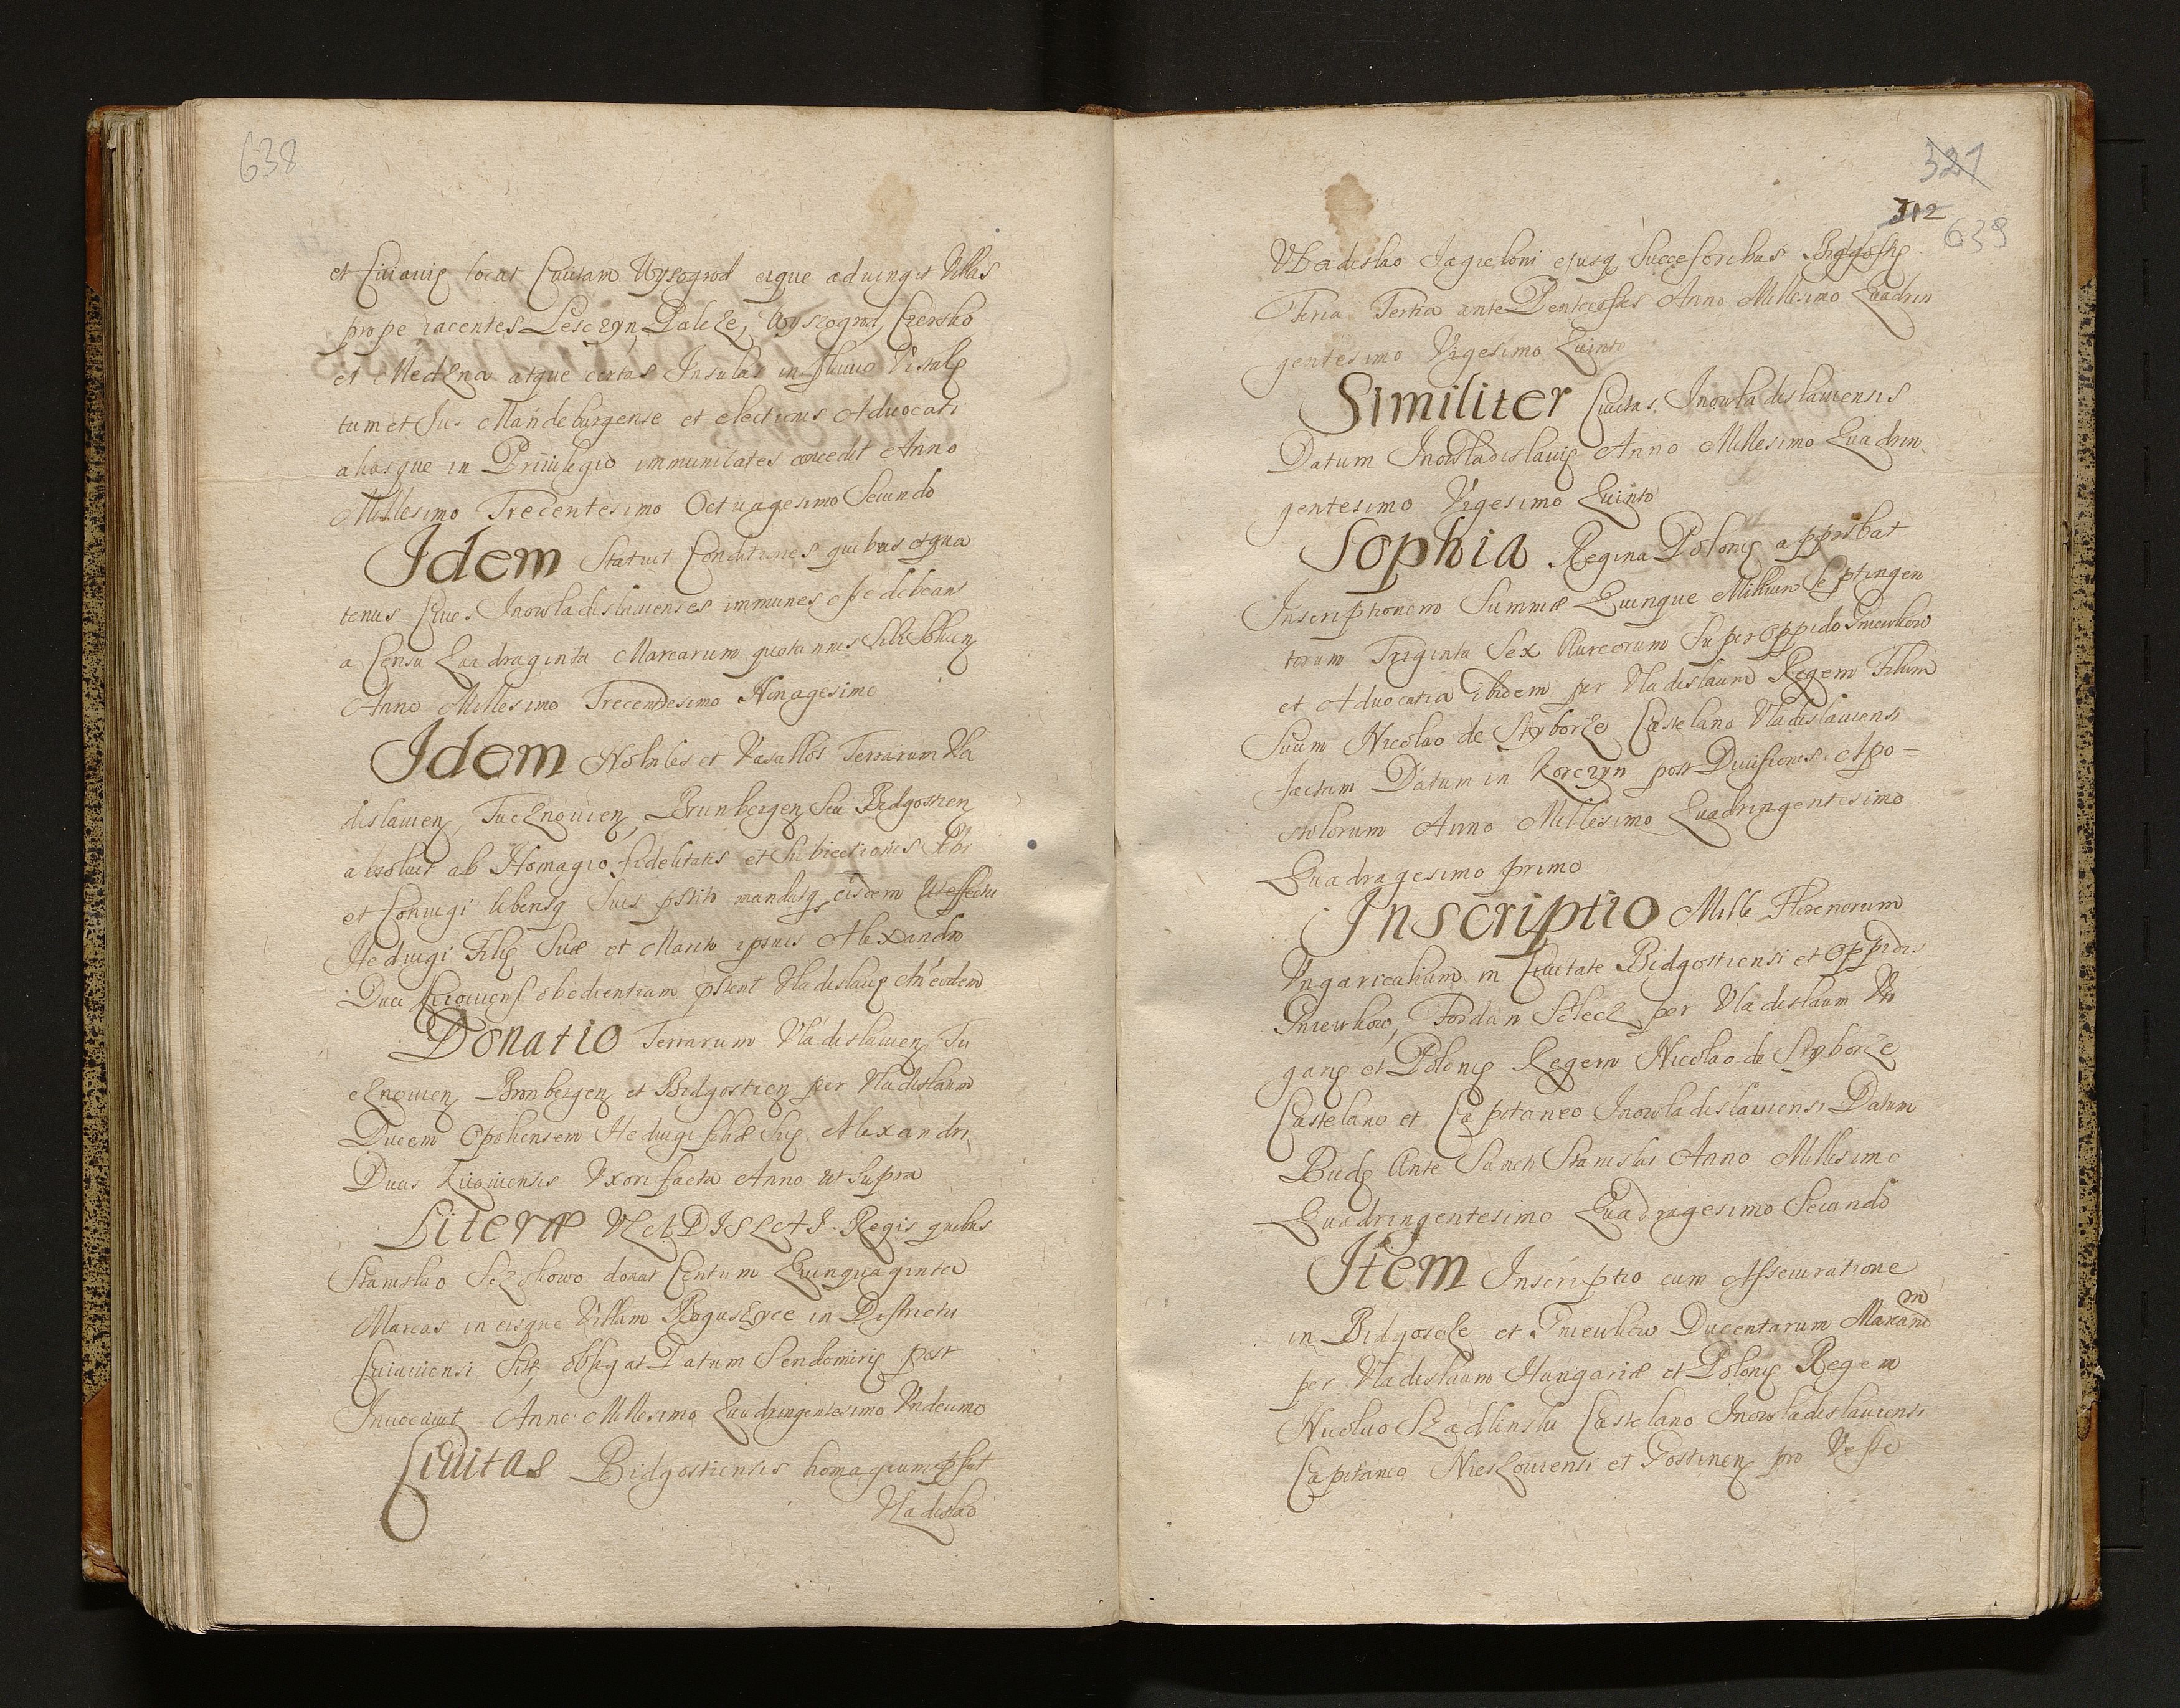 638
et Cuiavię locat Civitatem Wysogrod eique adiungit Villas
prope iacentes Lesczyn, Palcze, Wyszogrod, Czersko
et Medzna atque certas Insulas in fluvio Vistulę
tum et Jus Maydeburgense et electionis Advocati
aliasque in Privilegio immunitates concedit Anno
Millesimo Trecentesimo Octuagesimo Secundo
Idem Statuit Conditiones quibus
tenus Cives Inowladislauienses immunes esse debeant
a Censu Quadraginta Marcarum quotannis Sibi
Anno Millesimo Trecentesimo Nonagesimo
Idem Nobiles et Vasallos Terrarum Vla
dislauien, Tucznouien, Brunbergen Seu Bidgostien
absoluit ab Homagio fidelitatis et Subiectionis Sibi
et Coniugi liberisq Suis mandatq eisdem
Heduigi Filię Suæ et Marito ipsius Alexandro
Duci obedientiam Vladislauię eodem
Donatio Terrarum Vladislauien Tu
cznouien Bronbergen et Bidgostien per Vladislaum
Ducem Opoliensem Heduigi filiæ Suę Alexandri
Ducis Kiiouiensis Uxori facta Anno ut Supra
Literæ VLADISLAI Regis quibus
Stanislao donat Centum Quinquaginta
Marcas in eisque Villam Boguszyce in Districtu
Cuiauiensi obligat Datum Sendomirię post
Inuocauit Anno Millesimo Quadringentesimo Undecimo
Ciuitas Bidgostiensis homagium
Vladislao
321
312
639
Vladislao Jagieloni ejusq Successoribus
Feria Tertia ante Pentecostes Anno Millesimo Quadrin
gentesimo Vigesimo Quinto
Similiter Ciuitas Inowladislauiensis
Datum Inowladislauię Anno Millesimo Quadrin
gentesimo Vigesimo Quinto
Sophia Regina Polonię approbat
Inscriptionem Summæ Quinque Millium Septingen
torum Triginta Sex Aureorum Super Oppido Gniewkow
et Aduocatia ibidem per Vladislaum Regem Filium
Suum Nicolao de Styborze Castelano Vladislauiensi
factam Datum in Korczyn post Diuisionis Apo=
stolorum Anno Millesimo Quadringentesimo
Quadragesimo primo
Inscriptio Mille Florenorum
Vngaricalium in Ciuitate Bidgostiensi et Oppidis
Gniewkow, Fordan Solecz per Vladislaum Vn
garię et Polonię Regem Nicolao de Styborze
Castelano et Capitaneo Inowladislauiensi Datum
Budę Ante Sancti Stanislai Anno Millesimo
Quadringentesimo Quadragesimo Secundo
Item Inscriptio cum Assecuratione
in Bidgoscze et Gniewkow Ducentarum Marcarum
per Vladislaum Hungariæ et Polonię Regem
Nicolao Szadlinski Castelano Inowladislauiensi
Capitaneo Nieszouiensi et Gostinen pro Veste